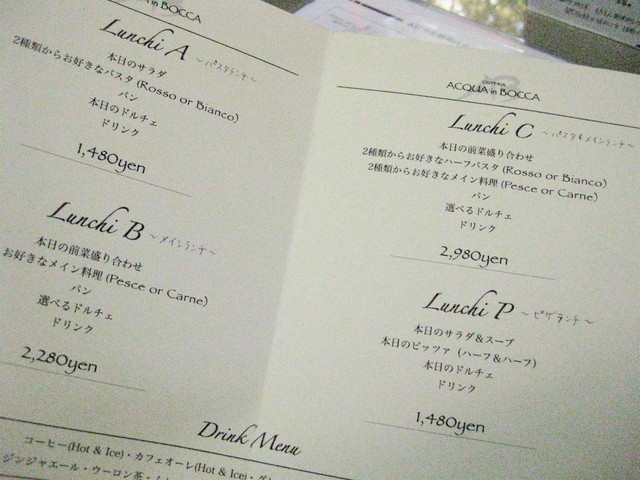 in BOCCA
Lunchi A ～パスタランチ～
本日のサラダ
2種類からお好きなパスタ(Rosso or Bianco)
パン
本日のドルチェ
ドリンク
1,480yen
Lunchi B ～メインランチ～
本日の前菜盛り合わせ
お好きなメイン料理(Pesce or Carne)
パン
選べるドルチェ
ドリンク
2,280yen
ACQUA in BOCCA
Lunchi C ～パスタ&メインランチ～
本日の前菜盛り合わせ
2種類からお好きなハーフパスタ(Rosso or Bianco)
2種類からお好きなメイン料理(Pesce or Carne)
パン
選べるドルチェ
ドリンク
2,980yen
Lunchi P ～ピザランチ～
本日のサラダ＆スープ
本日のピッツァ（ハーフ＆ハーフ）
本日のドルチェ
ドリンク
1,480yen
Drink Menu
コーヒー(Hot & Ice)・カフェオーレ(Hot & Ice)・
ジンジャエール・ウーロン茶・